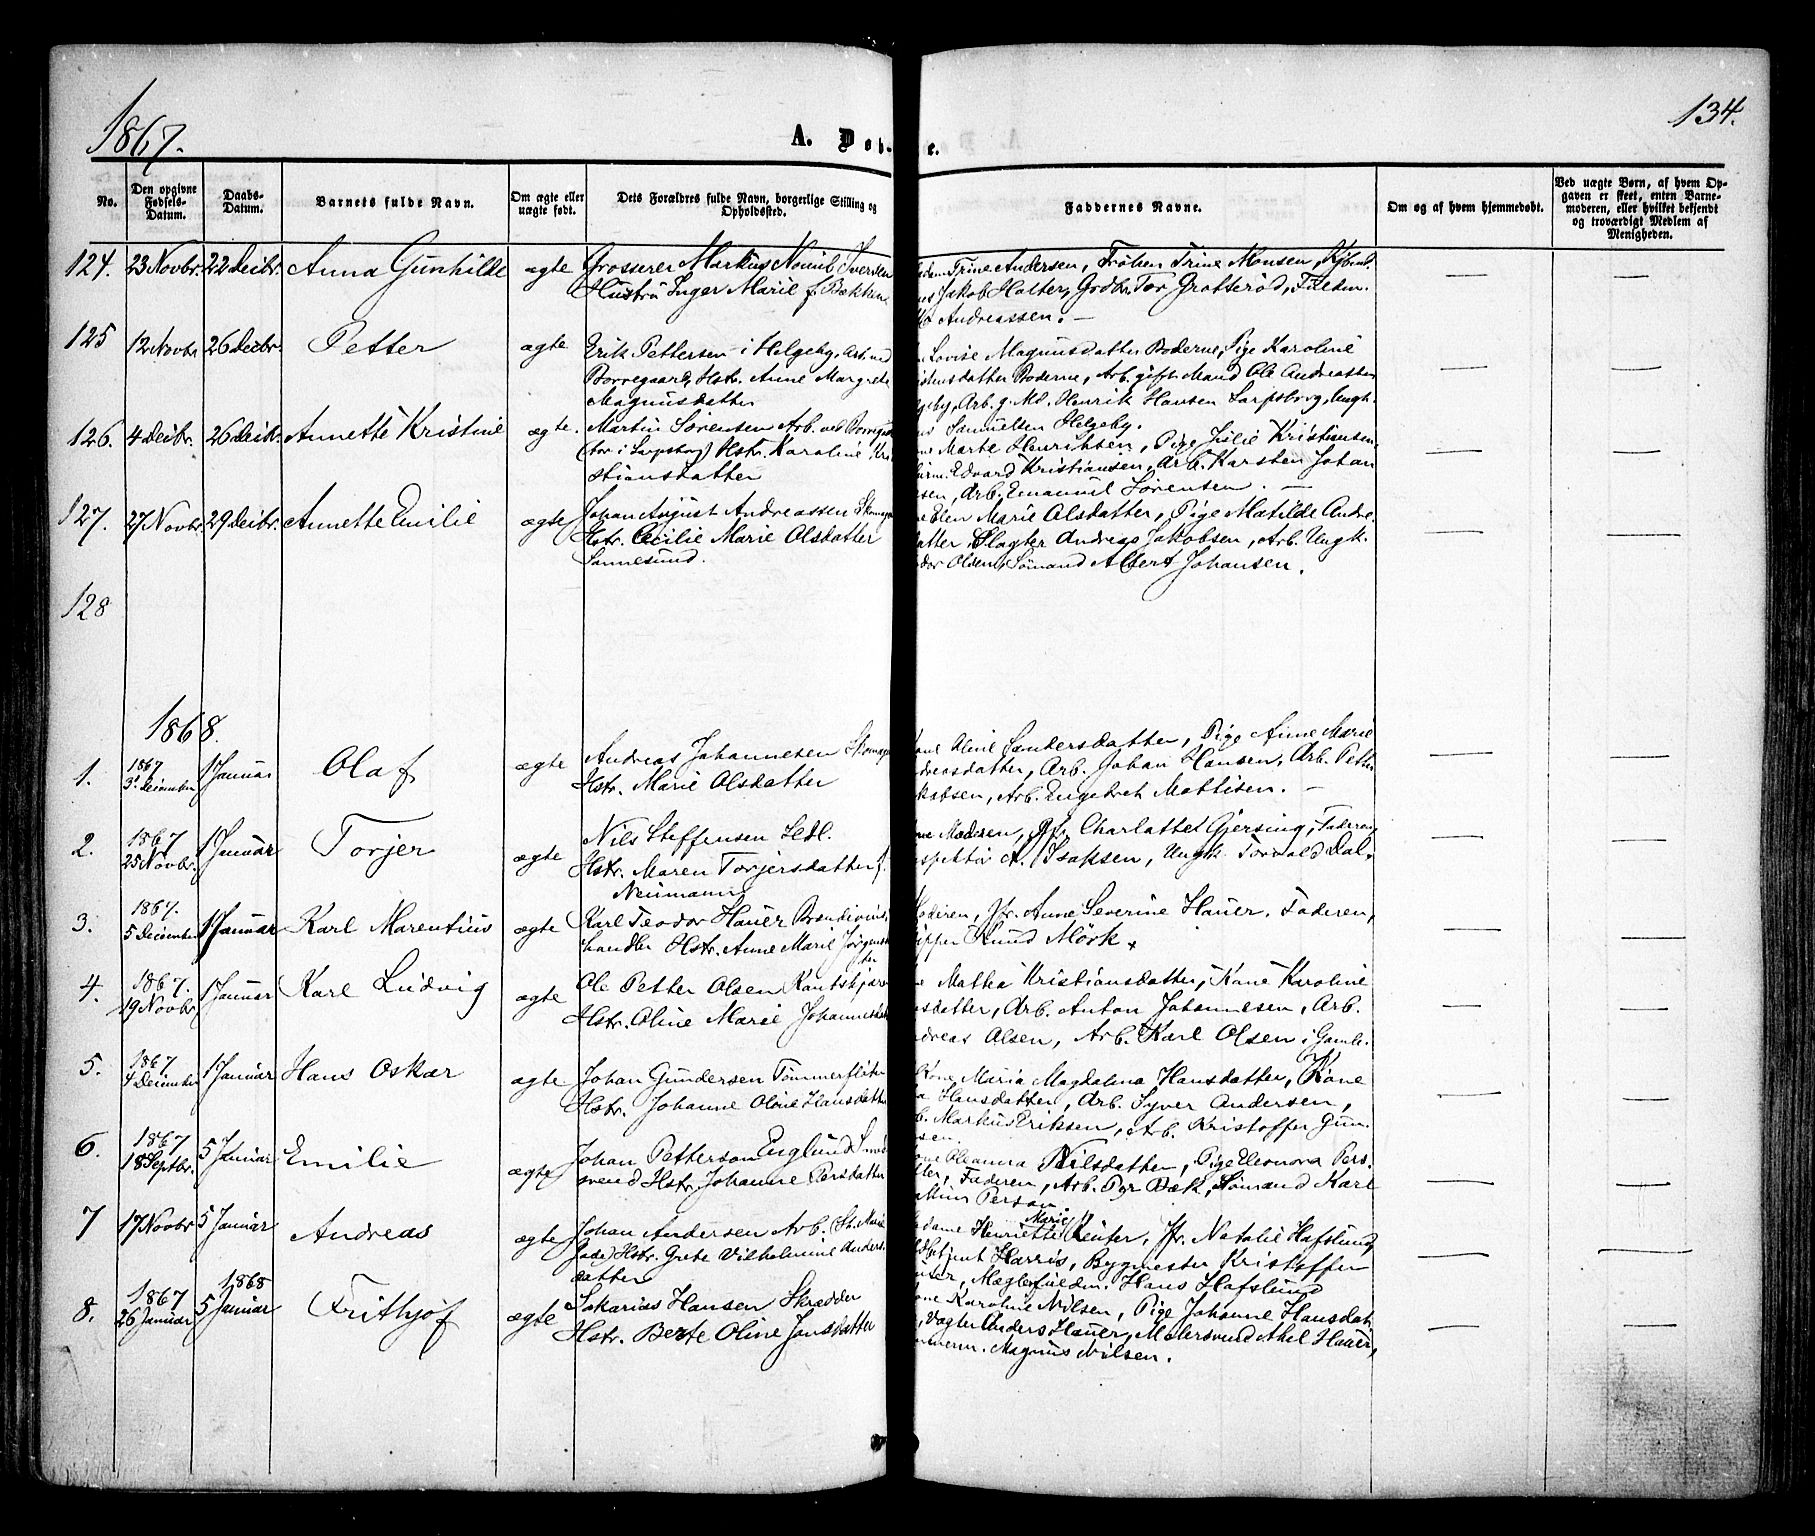 1867.
134.
A. Døb-
e.
No.
Den opgivne Fødsels-Datum.
Daabs-Datum.
Barnets fulde Navn.
Om ægte eller uægte født.
Dets Forældres fulde Navn, borgerlige Stilling og Opholdssted.
Faddernes Navne.
Om og af hvem hjemmedøbt.
Ved uægte Børn, af hvem Opgaven er skeet, enten Barnemoderen, eller hvilket bekjendt og troværdigt Medlem af Menigheden.
124. 23 Novbr. 22 Decbr. Anna Gunhilde ægte Grosserer Markus Iversen
Hustru Inger Marie f. Bækken
Trine Andersen, Frøken Trine Monsen, Kjbmd.
Jakob Holter, Grdbr. Tor Grotterød, Fulde.
Andreassen. —
125 12 Novbr. 26 Decbr. Petter ægte Erik Pettersen i Helgeby, Arb. ved
Borregaard, Hstr. Anne Margrete
Magnusdatter
Lovise Magnusdatter Boderne, Pige Karoline
datter Boderne, Arb. gift Mand Ole Andreassen
Arb. g. Md. Henrik Hansen Sarpsborg, Ungk.
Samuelsen Helgeby.
126. 4 Decbr. 26 Decbr. Annette Kristine ægte. Martin Sørensen Arb. ved Borregaard
(bor i Sarpsborg) Hstr. Karoline Kri
stiansdatter
Marte Henriksen, Pige Julie Kristiansen
Edvard Kristiansen, Arb. Karsten Johan
sen, Arb. Emanuel Sørensen. —
127. 27 Novbr. 29 Decbr. Annette Emilie ægte Johan August Andreassen Skomager
Hstr. Cecilie Marie Olsdatter
Sannesund.
Elen Marie Olsdatter, Pige Matilde Andre
datter, Slagter Andreas Jakobsen, Arb. Ungk.
Olsen, Sømand Albert Johansen.
128
1868.
1. 1867 3' December 1 Januar Olaf ægte Andreas Johannesen Skomager
Hstr. Marie Olsdatter
Kone Oline Sandersdatter, Pige Anne Marie
dreasdatter, Arb. Johan Hansen, Arb. Petter
kobsen, Arb. Engebret Mattisen. —
2. 1867 25 Novbr. 1 Januar Torjer ægte Nils Steffensen
Hstr. Maren Torjersdatter f.
Neumann
Moderen, Jfr. Charlotte Gjersing, Faderen,
spektør A. Isaksen, Ungk. Torvald Dal.
3. 1867. 5 December 1 Januar Karl Marentius ægte Karl Teodor Hauer Brændeviins
handler Hstr. Anne Marie Jørgens
Moderen, Jfr. Anne Severine Hauer. Faderen,
Skipper Knud Mørk.
4. 1867. 19 Novbr. 1 Januar Karl Ludvig ægte Ole Petter Olsen
Hstr. Oline Marie Johannesdatter
Mathea Kristiansdatter, Kone Karoline
datter, Arb. Anton Johannesen, Arb.
dreas Olsen, Arb. Karl Olsen i Gamle.
5. 1867. 4 December 1 Januar Hans Oskar ægte Johan Gundersen Tømmerfløter
Hstr. Johanne Oline Hansdatter
Kone Maria Magdalina Hansdatter, Kone
Hansdatter, Arb. Syver Andersen,
Markus Eriksen, Arb. Kristoffer Gun
sen.
6. 1867 18 Septbr. 5 Januar Emilie ægte Johan Petterson Englund Smed
svend Hstr. Johanne Persdatter
Kone Oleanna Nilsdatter, Pige Eleonora Pers.
Faderen, Arb. Per Bæk, Sømand Karl
Person.
7 17 Novbr 5 Januar Andreas ægte Johan Andersen Arb. (St. Marie
Gade) Hstr. Grete Vilhelmine Anders
datter
Madame Henriette Marie Reuter, Jfr. Natalie Hafslund,
Harris, Bygmester Kristoffer
Hans Hafslund
8. 1867 26 Januar 1868 5 Januar Frithjof ægte Sakarias Hansen Skrædder
Hstr. Berte Oline Jansdatter
Kone Karoline Nilsen, Pige Johanne Hansdat
Vægter Anders Hauer, Malersvend Axel Hauer,
Magnus Nilsen.